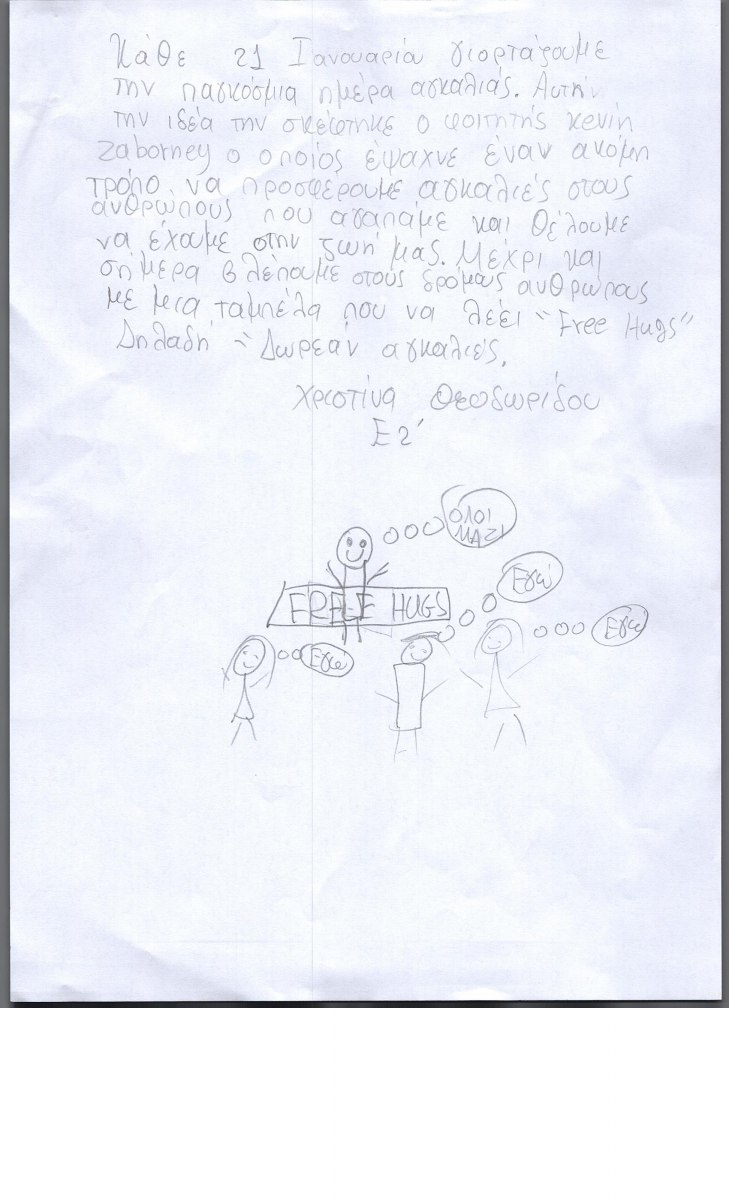 Κάθε 21 Ιανουαρίου γιορτάζουμε
την παγκόσμια ημέρα αγκαλιάς. Αυτήν
την ιδέα την σκέφτηκε ο φοιτητής κενιη
Zaborney ο οποίος έψαχνε έναν ακόμη
τρόπο να προσφέρουμε αγκαλιές στους
ανθρώπους που αγαπάμε και θέλουμε
να έχουμε στην ζωή μας. Μέχρι και
σήμερα βλέπουμε στους δρόμους ανθρώπους
με μια ταμπέλα που να λέει "Free Hugs"
Δηλαδή "Δωρεάν αγκαλιές.
Χριστίνα Θεοδωρίδου
Ε2'
ΟΛΟΙ
ΜΑΖΙ
Εγώ
FREE HUGS
Εγώ
Εγώ